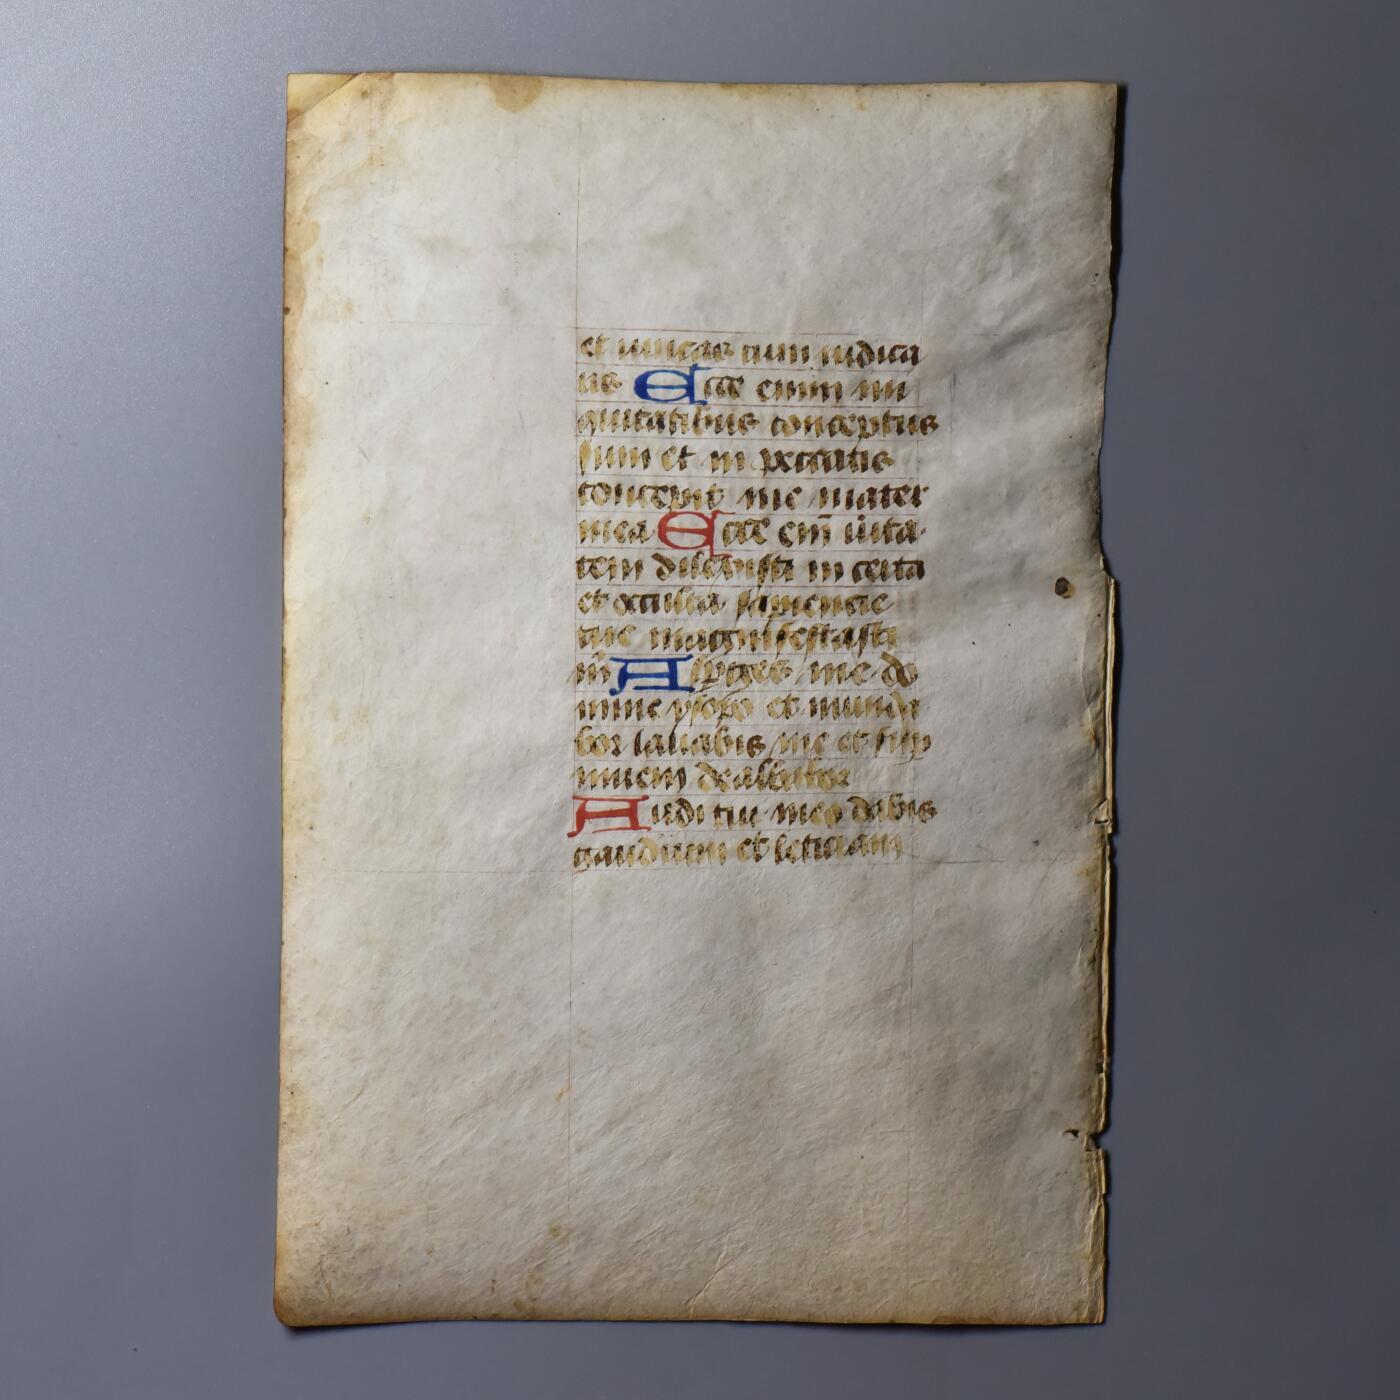 et uincas cum iudica
tis Ecce enim ini
quitatibus conceptus
sum et in peccatis
concepit me mater
mea Ecce eni̅ u̅ita
tem dilexisti incerta
et occulta sapiencie
tue magnifestasti
m̅ Asp̲ges me do
mine ysopo et munda
bor lauabis me et sup̲
niuem dealbabor
Auditui meo dabis
gaudium et leticiam